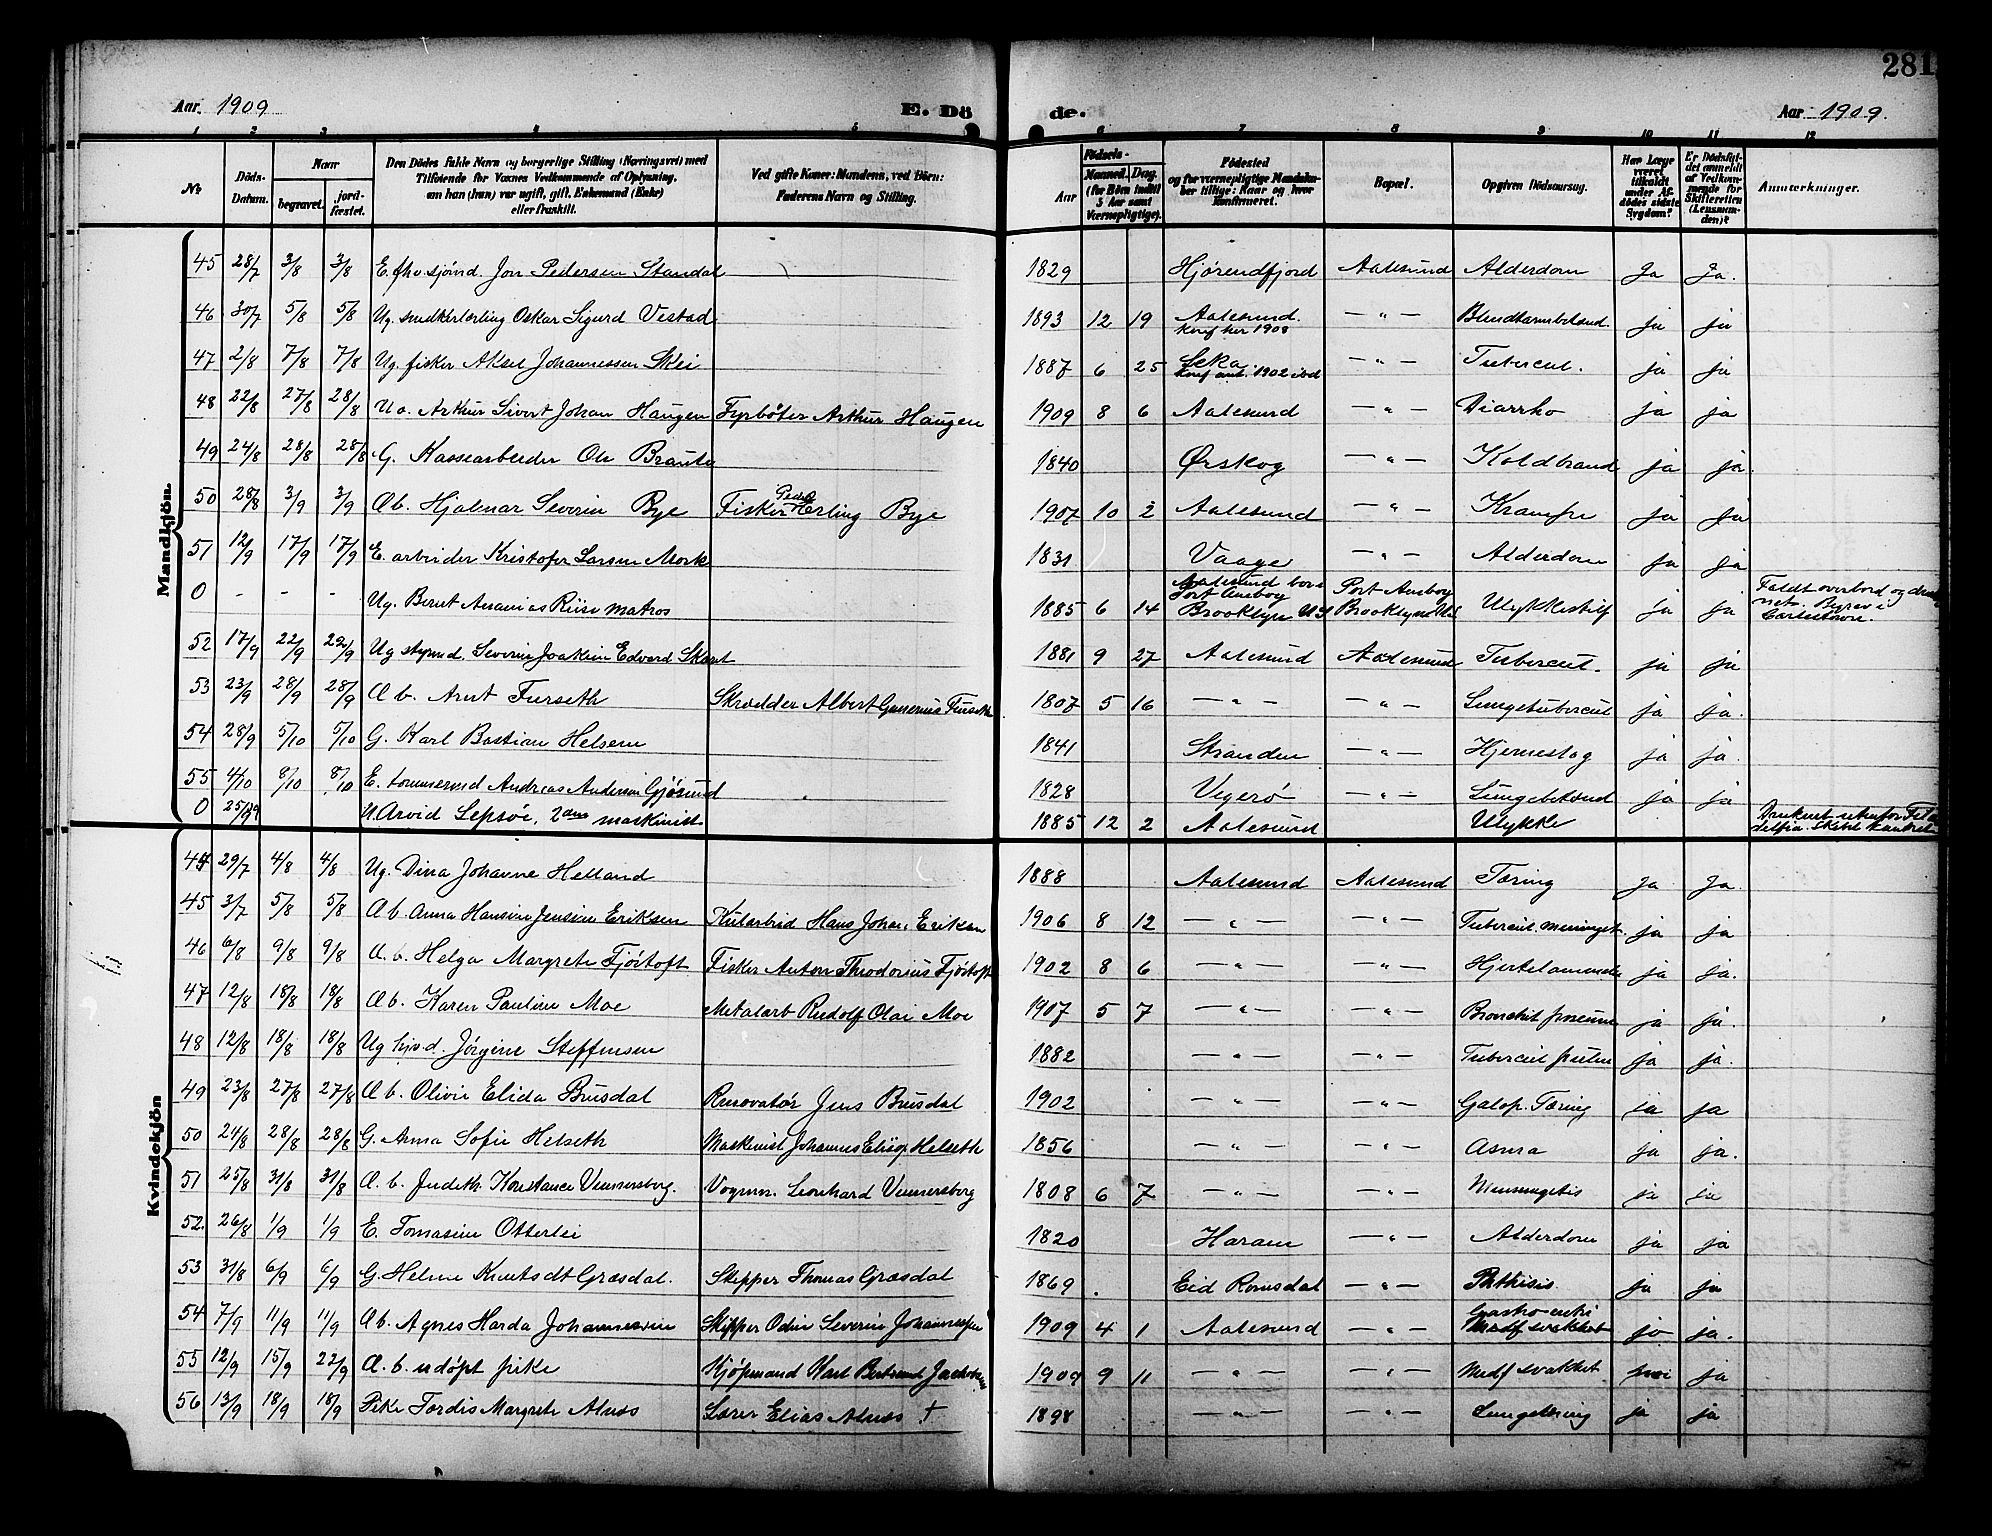 281
Aar 1909 E. Dö de. Aar 1909.
1 2 3 4 5 6 7 8 9 10 11 12
No
Döds-Datum.
Naar begravet. jordfæstet.
Den Dödes fulde Navn og borgerlige Stilling (Næringsvei) med Tilföiende for Voxnes Vedkommende af Oplysning, om han (hun) var ugift, gift, Enkemand (Enke) eller fraskilt.
Ved gifte Koner: Mandens, ved Börn: Faderens Navn og Stilling.
Födsels- Aar Maaned. Dag. (for Börn indtil 5 Aar samt Værnepligtige).
Födested og for værnepligtige Mandskaber tillige: Naar og hvor konfirmeret.
Bopæl.
Opgiven Dödsaarsag.
Har Læge været tilkaldt under Afdödes sidste Sygdom?
Er Dödsfaldet anmeldt af Vedkommende for Skifteretten (Lensmanden)?
Anmærkninger.
Mandkjön.
45 28/7 3/8 3/8 E. fhv. sjömd. Jon Pedersen Standal 1829 Hjörendfjord Aalesund Alderdom Ja Ja.
46 30/7 5/8 5/8 Ug. snedkerlærling Oskar Sigurd Vestad 1893 12 19 Aalesund. Konf her 1908 — " — Blindtarmbetænd. ja ja
47 2/8 7/8 7/8 Ug. fisker Aksel Johannessen Skei 1887 6 25 Leka 1902 — " — Tubercul. ja ja
48 22/8 27/8 28/8 Arthur Sivert Johan Haugen Fyrböter Arthur Haugen 1909 8 6 Aalesund — " — Diarrho ja ja
49 24/8 28/8 28/8 G. Kassearbeider Ole Braute 1840 Ørskog — " — Koldbrand ja ja.
50 28/8 3/9 3/9 Æb. Hjalmar Severin Bye Fisker Peder Herling Bye 1907 10 2 Aalesund — " — Krampe ja Ja
51 12/9 17/9 17/9 E. arbeider Kristofer Larsen Mork 1831 Vaage — " — Alderdom ja ja
0 - - - Ug. Bernt Ananias Riise matros 1885 6 14 Aalesund Brooklyn US Port Amboy Brooklyn Ulykkestilf ja ja Faldt overbord og
52 17/9 22/9 22/9 Ug styrmd. Severin Joakim Edvard Skaret 1881 9 27 Aalesund Aalesund Tubercul. ja ja
53 23/9 28/9 28/9 Æb. Arnt Furseth Skrædder Albert Gunerius Furseth 1807 5 16 — " — — " — Lungetubercul ja ja.
54 28/9 5/10 5/10 G. Karl Bastian Helsem 1841 Stranden — " — Hjerneslag ja ja.
55 4/10 8/10 8/10 E. tömmermd Andreas Andersen Gjösund 1828 Vegerö — " — Lungebetænd ja ja
0 25/ U. Arvid Sepsöe, 2den maskinist 1885 12 2 Aalesund Ulykke Druknet utenfor
Kvindekjön
44 29/7 4/8 4/8 Ug. Dina Johanne Helland 1888 Aalesund Aalesund Tæring Ja Ja.
45 3/7 5/8 5/8 Æb. Anna Hansine Jensine Eriksen Kularbeid Hans Johan Eriksen 1906 8 12 " — " — Tubercul. meninget. ja ja
46 6/8 9/8 9/8 Æ. b. Helga Margrete Fjörtoft Fisker Anton Theodorius Fjörtoft 1902 8 6 — " — — " — Hjertelammelse ja ja.
47 12/8 18/8 18/8 Æb. Karen Pauline Moe Metalarb Rudolf Olai Moe 1907 5 7 — " — — " — Bronchit pneum ja ja.
48 12/8 18/8 18/8 Ug hjvd. Jörgine Steffensen 1882 — " — — " — Tubercul pulm ja ja.
49 23/8 27/8 27/8 Æ b. Olivie Elida Brusdal Renovatör Jens Brusdal 1902 — " — — " — Galop. Tæring ja ja
50 24/8 28/8 28/8 G. Anna Sofie Helseth Maskinist Johannes Elisæ Helseth 1856 — " — — " — Asma ja ja.
51 25/8 31/8 31/8 Æ. b. Judith Konstance Vennersborg. Vognm. Leonhard Vennersborg 1808 6 7 — " — — " — Meningetis ja ja
52. 26/8 1/9 1/9 E. Tomasine Otterlei 1820 Haram — " — Alderdom ja ja
53 31/8 6/9 6/9 G. Helene Knutsdt Græsdal. Skipper Thomas Græsdal 1869 Eid Romsdal — " — Phthisis ja ja
54 7/9 11/9 11/9 Æb. Agnes Harda Johannessen Skipper Odin Severin Johannessen 1909 4 1 Aalesund — " — Gastro-enteri Medf svakhet ja ja.
55 12/9 15/9 22/9 Æ. b. udöpt pike Kjöpmand Karl Bertrand Jacobsen 1909 9 11 " " Medf svakhet nei ja
56 13/9 18/9 18/9 Pike Tordis Margrete Alnæs Lærer Elias Alnæs † 1898 — " — — " — Lungetæring ja ja